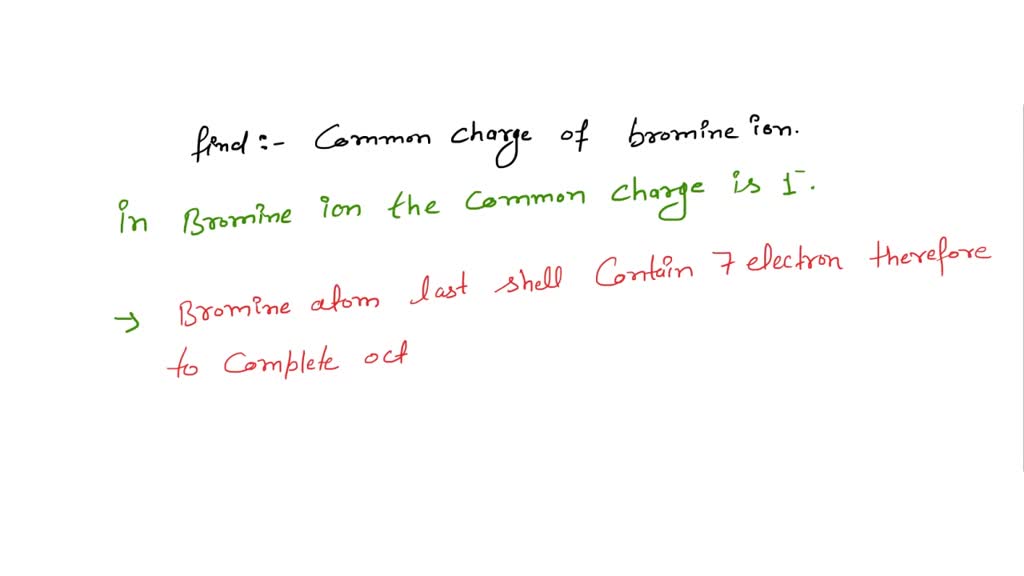 find:- Common charge of bromine ion.
in Bromine ion the Common Charge is 1⁻.
→ Bromine atom last shell Contain 7 electron therefore
to Complete oct